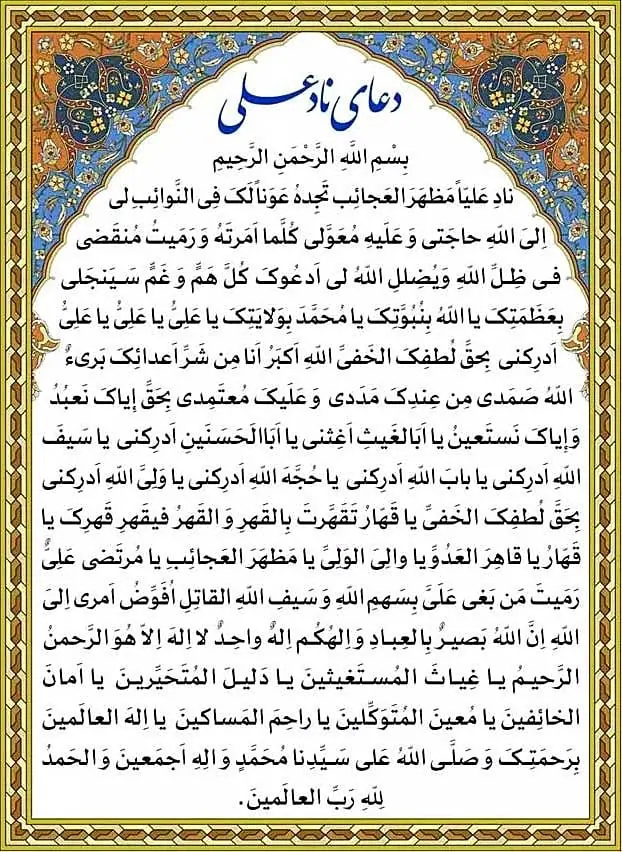 دعای ناد علی
بِسْمِ اللَّهِ الرَّحْمَنِ الرَّحِیمِ
نادِ عَلیَاً مَظهَرَ العَجائِب تَجِدهُ عَوناً لَکَ فِی النَّوائِب لی
اِلیَ اللهِ حاجَتی وَ عَلَیهِ مُعَوَّلی کُلَّما اَمَرتَهُ وَ رَمَیتُ مُنقَضی
فی ظِلِّ اللهِ وَیُضلِلِ اللهُ لی اَدعُوکَ کُلَّ هَمٍّ وَ غَمٍّ سَیَنجَلی
بِعَظَمَتِکَ یا اللهُ بِنُبُوَّتِکَ یا مُحَمَّدَ بِوَلایَتِکَ یا عَلِیُّ یا عَلِیُّ یا عَلِیُّ
اَدرِکنی بِحقِّ لُطفِکَ الخَفیِّ اللهِ اَکبَرُ اَنا مِن شَرِّ اَعدائِکَ بَریءٌ
اللهُ صَمَدی مِن عِندِکَ مَدَدی وَ عَلَیکَ مُعتَمِدی بِحَقِّ اِیاکَ نَعبُدُ
وَ اِیاکَ نَستَعینُ یا اَبَالغَیثِ اَغِثنی یا اَبَاالحَسَنَینِ اَدرِکنی یا سَیفَ
اللهِ اَدرِکنی یا بابَ اللهِ اَدرِکنی یا حُجَّهَ اللهِ اَدرِکنی یا وَلِیَّ اللهِ اَدرِکنی
بِحَقِّ لُطفِکَ الخَفیِّ یا قَهّارُ تَقَهَّرتَ بِالقَهرِ وَ القَهرُ فیقَهرِ قَهرِکَ یا
قَهّارُ یا قاهِرَ العَدُوِّ یا والِیَ الوَلِیِّ یا مَظهَرَ العَجائِبِ یا مُرتَضی عَلِیٌّ
رَمَیتَ مَن بَغی عَلَیَّ بِسَهمِ اللهِ وَ سَیفِ اللهِ القاتِلِ اُفَوِّضُ اَمری اِلیَ
اللهِ اِنَّ اللهُ بَصیرٌ بِالعِبادِ وَ اِلهُکُم اِلهٌ واحِدٌ لا اِلهَ اِلاّ هُوَ الرَّحمنُ
الرَّحیمُ یا غِیاثَ المُستَغیثینَ یا دَلیلَ المُتَحَیِّرینَ یا اَمانَ
الخائِفینَ یا مُعینَ المُتَوَکِّلینَ یا راحِمَ المَساکینَ یا اِلهَ العالَمینَ
بِرَحمَتِکَ وَ صَلَّی اللهُ عَلی سَیِّدِنا مُحَمَّدٍ وَ الِهِ اَجمَعینَ وَ الحَمدُ
لِلّهِ رَبِّ العالَمینَ.